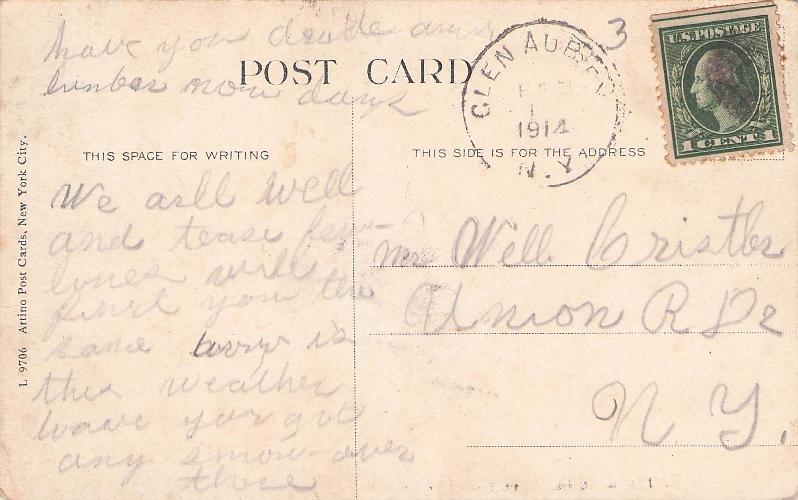 have you drade any
lumber now days
POST CARD
GLEN AUBREY
FEB
1
1914
N.Y.
3
U.S. POSTAGE
1 CENT 1
THIS SPACE FOR WRITING
THIS SIDE IS FOR THE ADDRESS
We arll well
and tease few
lines will
find you the
same
this weather
have you got
any snow over
there
Mr Will Cristler
Union R D 2
N. Y.
L 9706 Artino Post Cards, New York City.